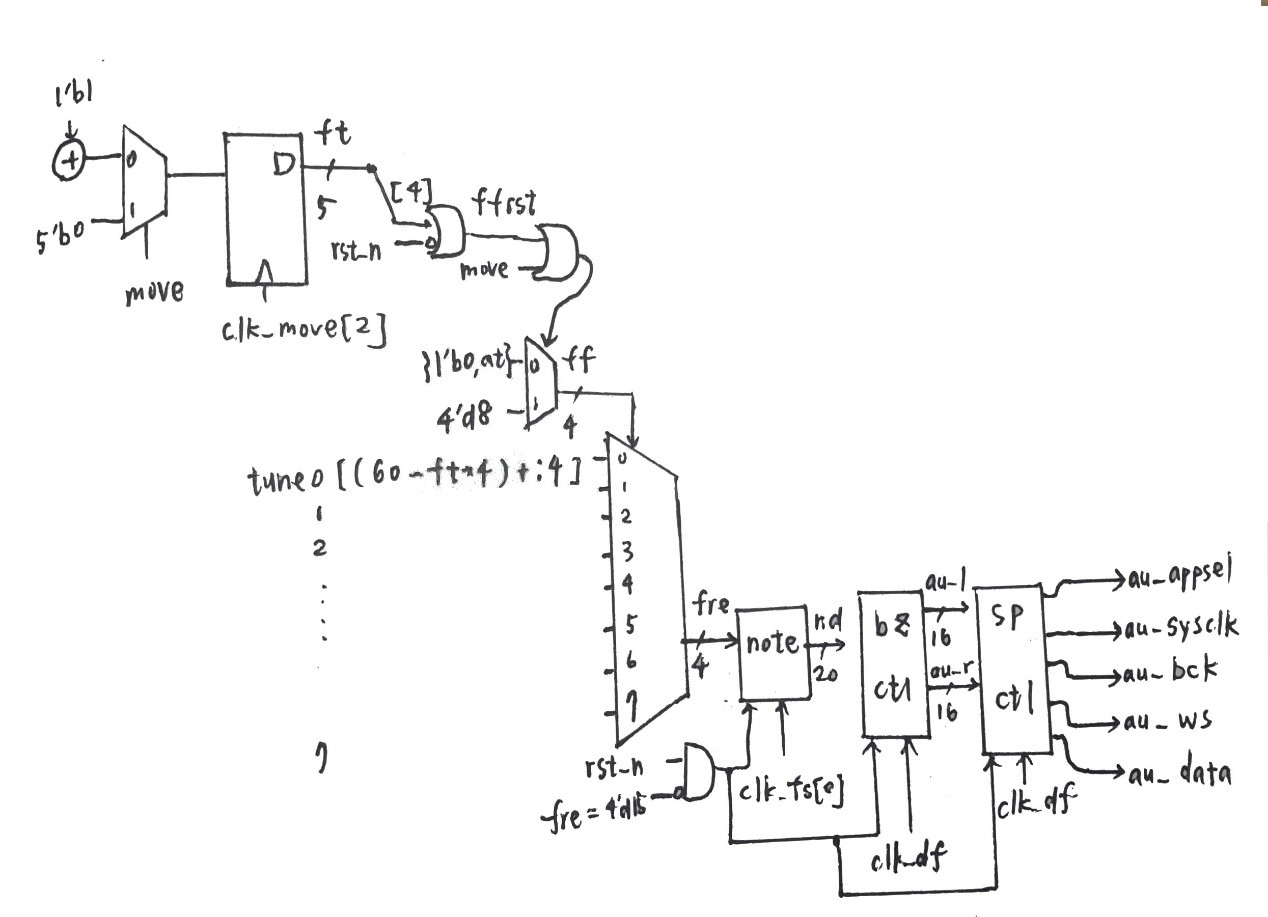 1'b1
+
0
1
5'b0
move
D
clk_move[2]
ft
5
[4]
rst_n
ffrst
move
{1'b0,at}
0
ff
4'd8
1
4
tune0 [(60-ft*4)+:4]
1
2
7
0
1
2
3
4
5
6
7
fre
4
note
nd
20
rst_n
fre=4'd15
clk_fs[0]
bz
ctl
au_l
16
au_r
16
clk_df
sp
ctl
clk_df
au_appsel
au_sysclk
au_bck
au_ws
au_data